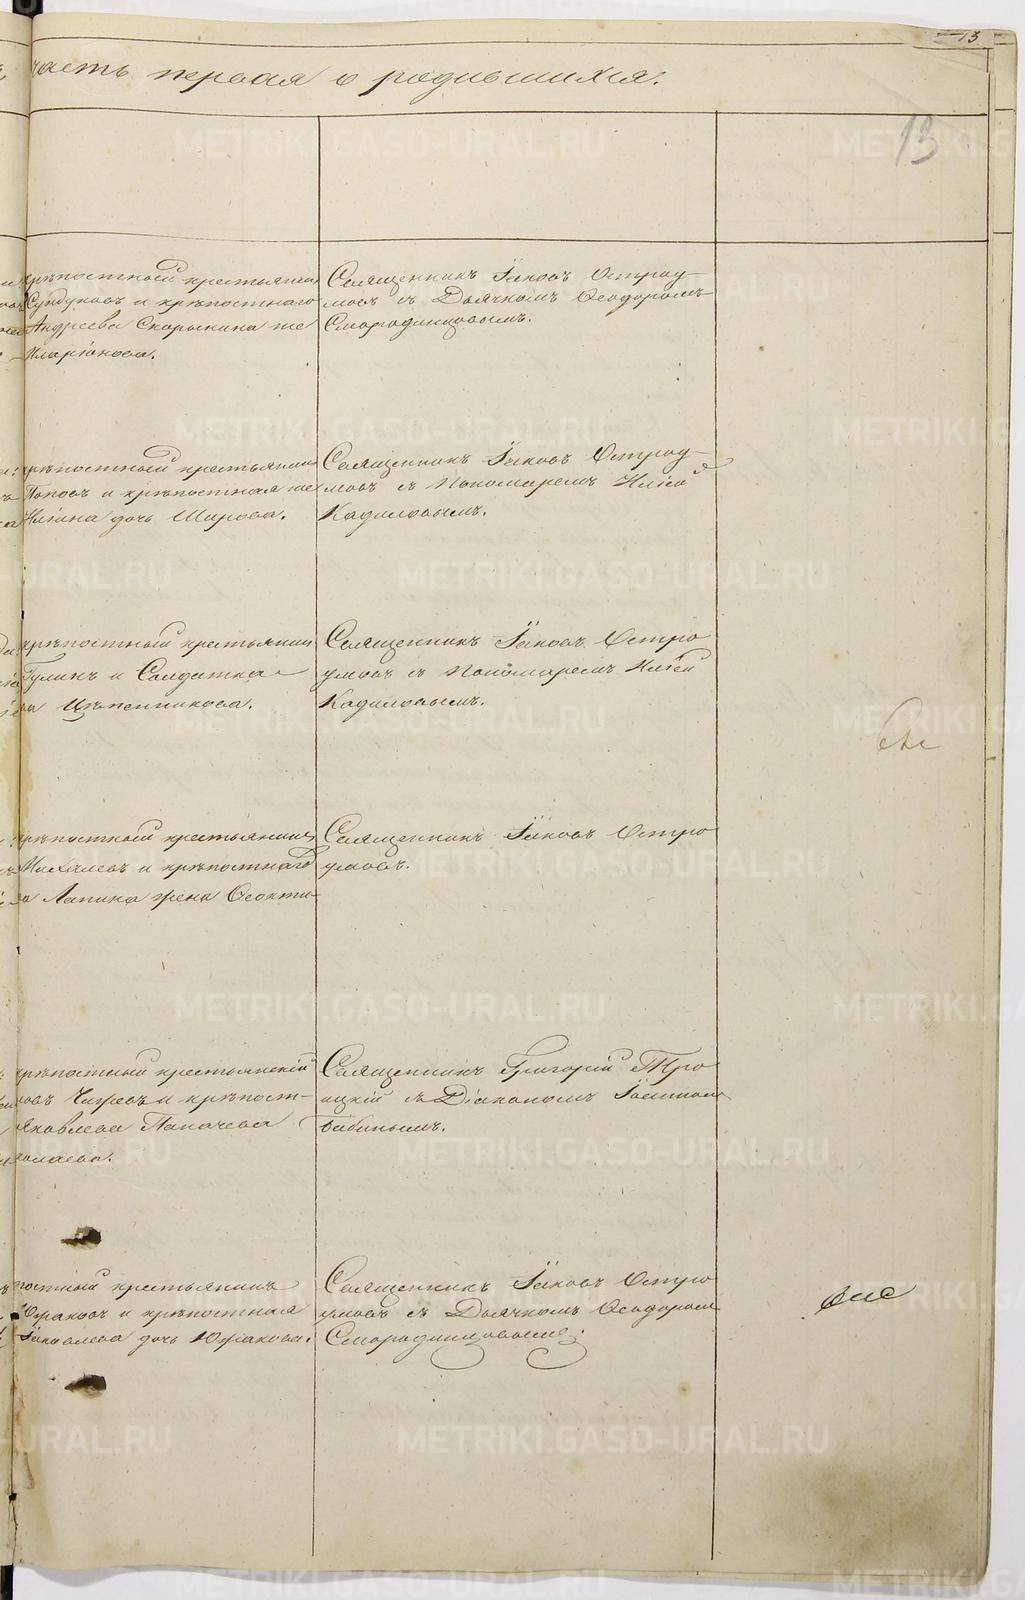 13
часть первая о родившихся.
13
крѣпостный крестьянинъ
Сундуковъ и крѣпостнаго
Андреева Скорынина же
Иларіонова.
Священникъ Іаковъ Остроу-
мовъ съ Дьячкомъ Ѳеодоромъ
Смородинцовымъ.
крѣпостный крестьянинъ
Поповъ и крѣпостная же
Ильина дочь Шарова.
Священникъ Іаковъ Остроу-
мовъ съ Пономаремъ Иліей
Кадиловымъ.
крѣпостный крестьянинъ
Гулинъ и Солдатка
Цѣпенникова.
Священникъ Іаковъ Остро
умовъ съ Пономаремъ Иліей
Кадиловымъ.
крѣпостный крестьянинъ
Михалевъ и крѣпостнаго
Лапина жена Ѳеокти-
Священникъ Іаковъ Остро
умовъ.
крѣпостный крестьянскій
Чигвевъ и крѣпост-
Яковлева Папачева
колаева.
Священникъ Григорій Тро
ицкій съ Діакономъ Іоанномъ
Бабинымъ.
постный крестьянинъ
Южаковъ и крѣпостная
Іаковлева дочь Южакова.
Священникъ Іаковъ Остро
умовъ съ Дьячкомъ Ѳеодоромъ
Смородинцовымъ.
METRIKI.GASO-URAL.RU